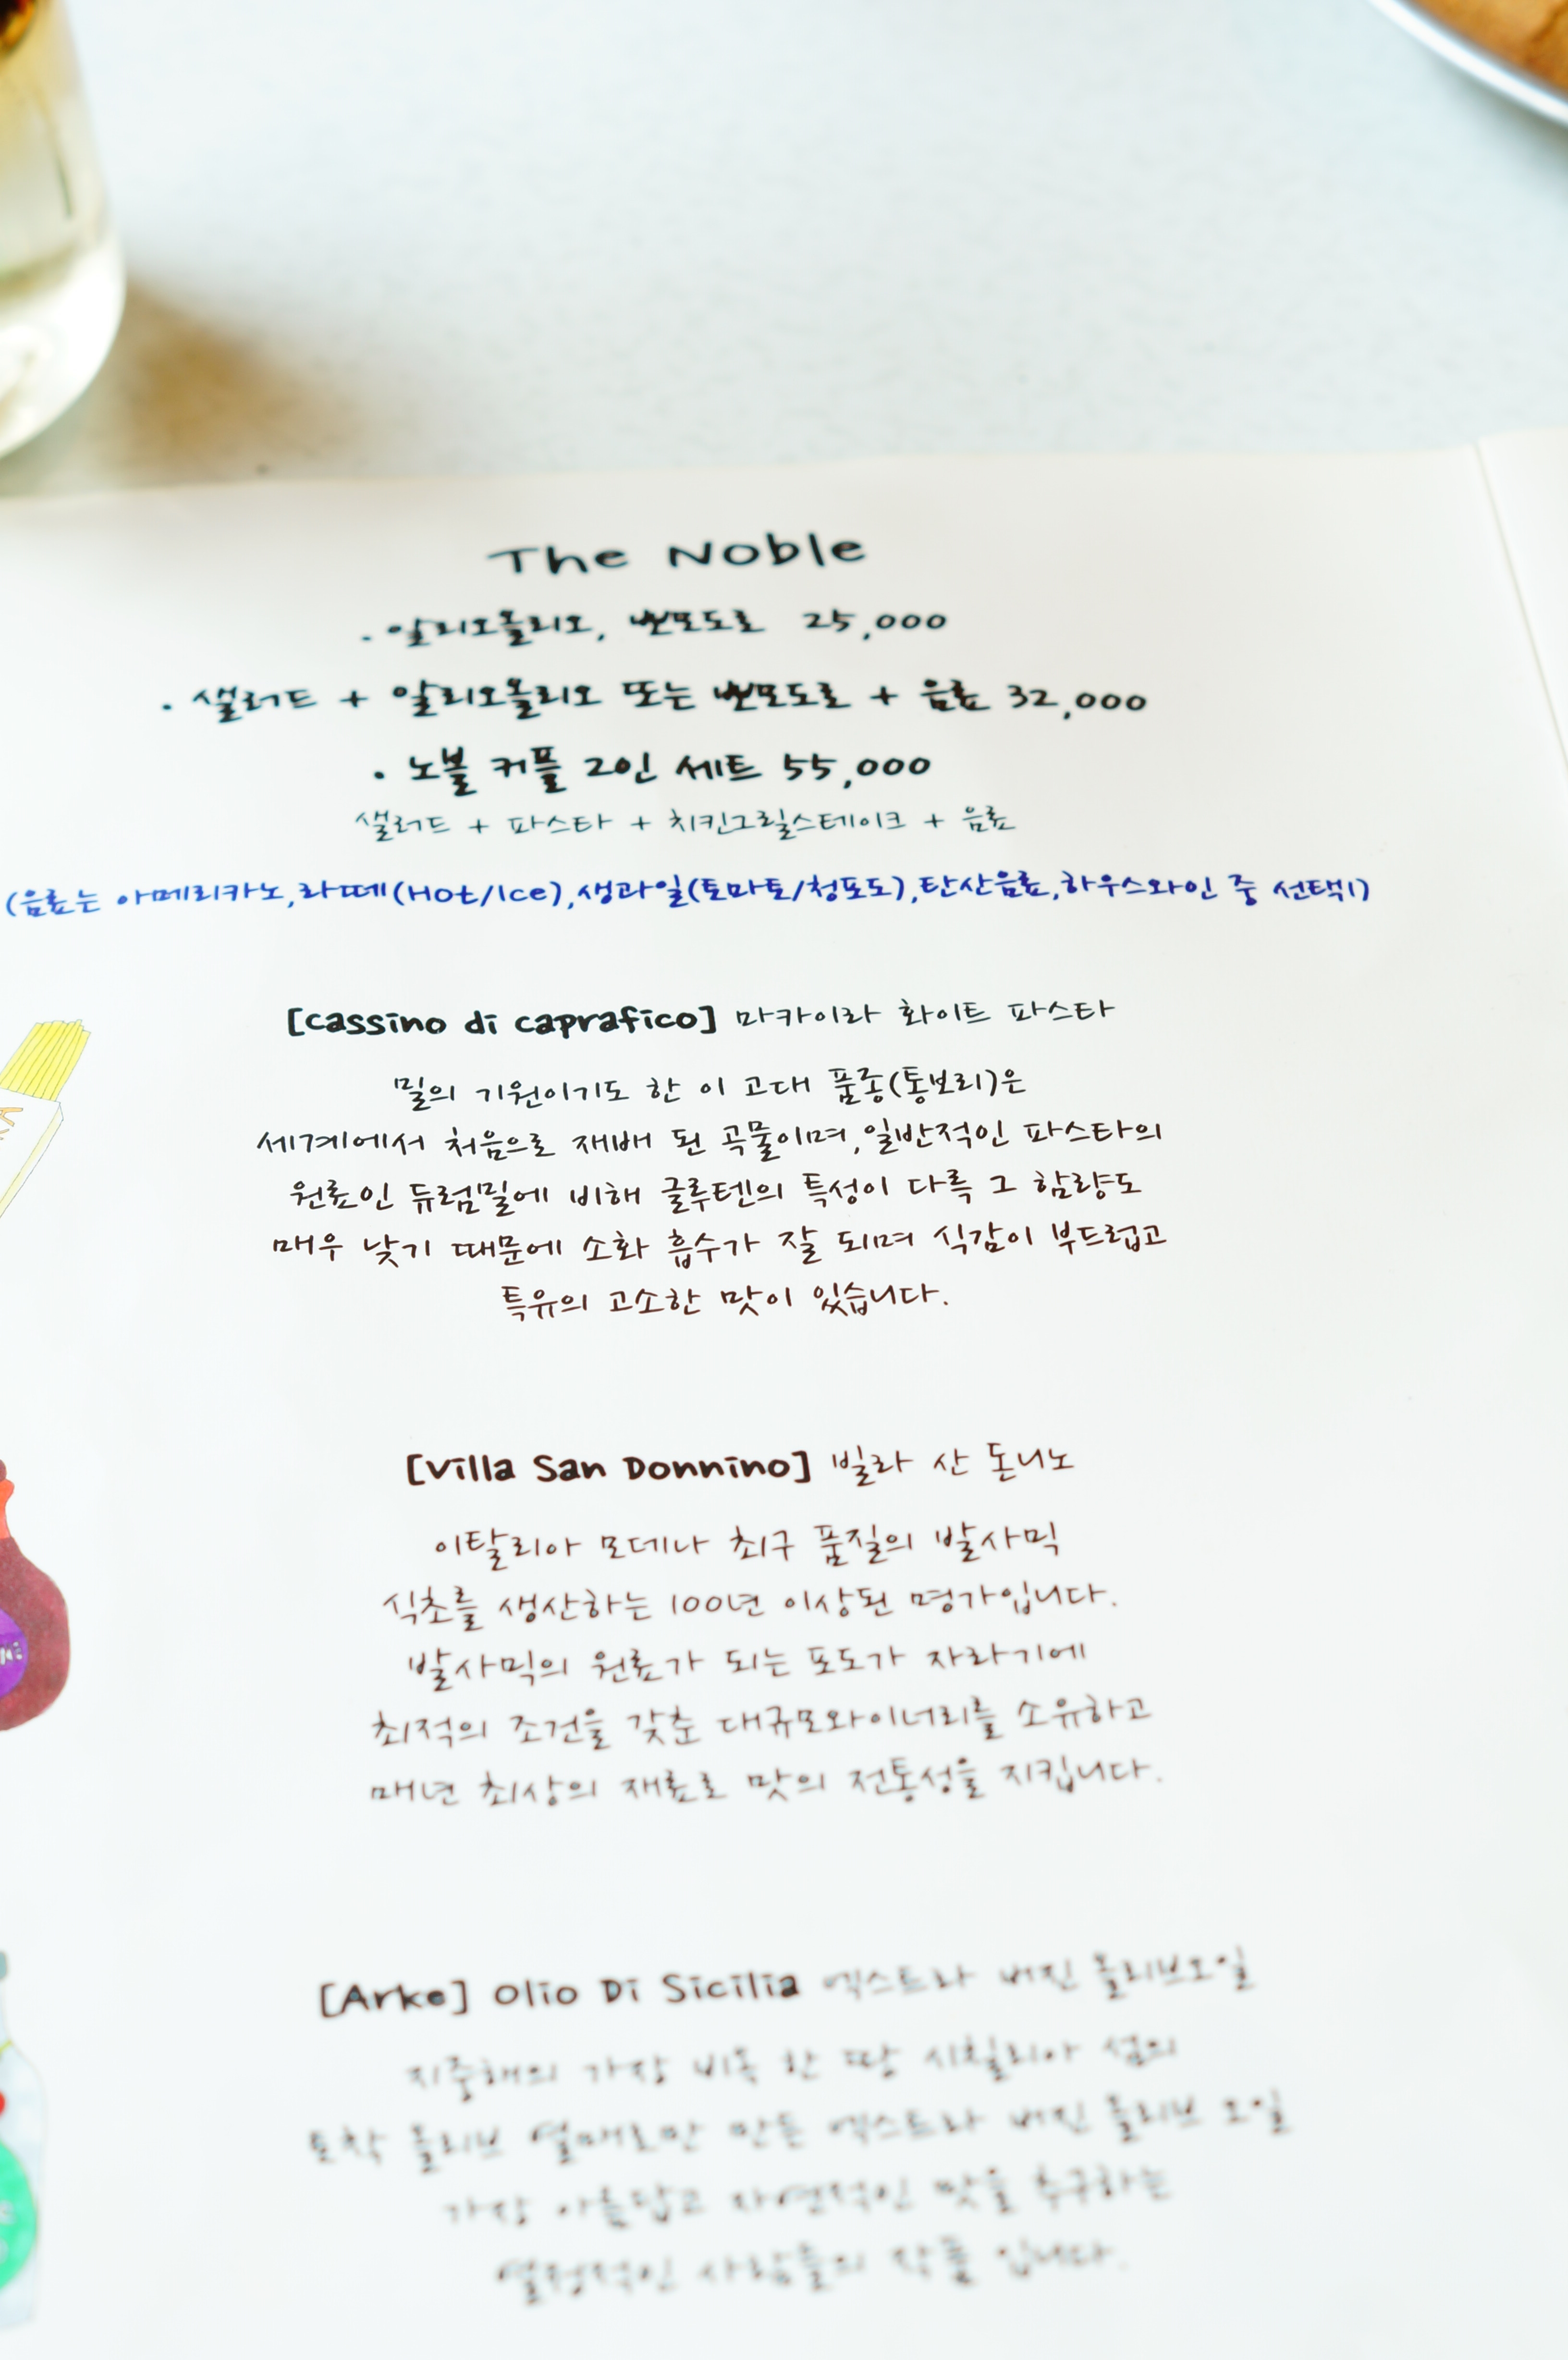 The Noble
· 알리오올리오, 뽀모도로 25,000
· 샐러드 + 알리오올리오 또는 뽀모도로 + 음료 32,000
· 노블 커플 2인 세트 55,000
샐러드 + 파스타 + 치킨그릴스테이크 + 음료
(음료는 아메리카노,라떼(Hot/Ice),생과일(토마토/청포도),탄산음료,하우스와인 중 선택1)
[cassino di caprafico] 마카이라 화이트 파스타
밀의 기원이기도 한 이 고대 품종(통보리)은
세계에서 처음으로 재배 된 곡물이며,일반적인 파스타의
원료인 듀럼밀에 비해 글루텐의 특성이 다륵 그 함량도
매우 낮기 때문에 소화 흡수가 잘 되며 식감이 부드럽고
특유의 고소한 맛이 있습니다.
[Villa San Donnino] 빌라 산 돈니노
이탈리아 모데나 최구 품질의 발사믹
식초를 생산하는 100년 이상된 명가입니다.
발사믹의 원료가 되는 포도가 자라기에
최적의 조건을 갖춘 대규모와이너리를 소유하고
매년 최상의 재료로 맛의 전통성을 지킵니다.
[Arke] Olio Di Sicilia 엑스트라 버진 올리브오일
지중해의 가장 비옥 한 땅 시칠리아 섬의
토착 올리브 열매로만 만든 엑스트라 버진 올리브 오일
가장 아름답고 자연적인 맛을 추구하는
열정적인 사람들의 작품 입니다.